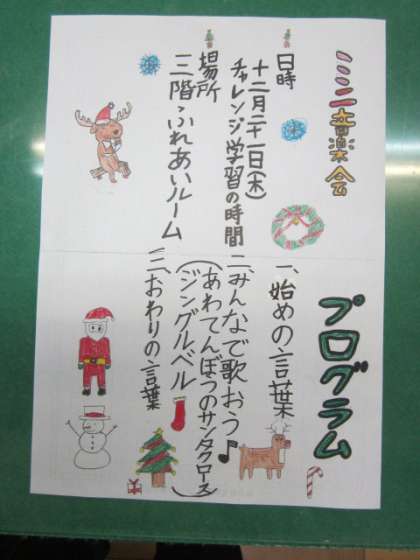 ミニ音楽会
日時
十二月二十一日(木)
チャレンジ学習の時間
場所
三階、ふれあいルーム
プログラム
一、始めの言葉
二、みんなで歌おう♪
(あわてんぼうのサンタクロース
ジングルベル)
三、おわりの言葉